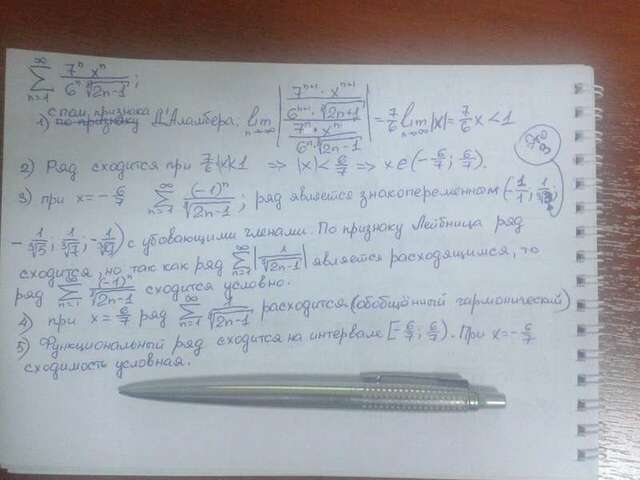 ∑_{n=1}^{∞} \frac{7^n x^n}{6^n \sqrt[3]{2n-1}};
с пом. признака
1) по признаку Д'Аламбера: lim_{n→∞} |\frac{\frac{7^{n+1}·x^{n+1}}{6^{n+1}·\sqrt[3]{2n+1}}}{\frac{7^n·x^n}{6^n·\sqrt[3]{2n-1}}}| = \frac{7}{6} lim_{n→∞} |x| = \frac{7}{6} x < 1
2) Ряд сходится при \frac{7}{6}|x|<1 ⇒ |x| < \frac{6}{7} ⇒ x ∈ (-\frac{6}{7}; \frac{6}{7}).
3) при x = -\frac{6}{7} ∑_{n=1}^{∞} \frac{(-1)^n}{\sqrt[3]{2n-1}}; ряд является знакопеременным (-\frac{1}{1}; \frac{1}{\sqrt[3]{3}};
-\frac{1}{\sqrt[3]{5}}; \frac{1}{\sqrt[3]{7}}; -\frac{1}{\sqrt[3]{9}}) с убовающими членами. По признаку Лейбница ряд
сходится, но так как ряд ∑_{n=1}^{∞} |\frac{1}{\sqrt[3]{2n-1}}| является расходящимся, то
ряд ∑_{n=1}^{∞} \frac{(-1)^n}{\sqrt[3]{2n-1}} сходится условно.
4) при x = \frac{6}{7} ряд ∑_{n=1}^{∞} \frac{1}{\sqrt[3]{2n-1}} расходится (обобщённый гармонический)
5) Функциональный ряд сходится на интервале [-\frac{6}{7}; \frac{6}{7}). При x = -\frac{6}{7}
сходимость условная.